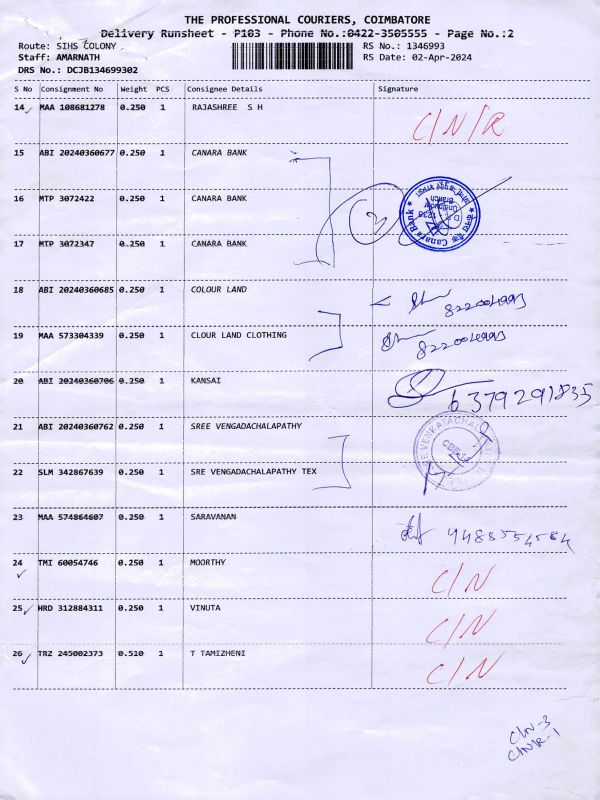 THE PROFESSIONAL COURIERS, COIMBATORE
Delivery Runsheet - P103 - Phone No.:0422-3505555 - Page No.:2
Route: SIHS COLONY RS No.: 1346993
Staff: AMARNATH RS Date: 02-Apr-2024
DRS No.: DCJB134699302
S No Consignment No Weight PCS Consignee Details Signature
14 MAA 108681278 0.250 1 RAJASHREE S H C/N/R
15 ABI 20240360677 0.250 1 CANARA BANK
16 MTP 3072422 0.250 1 CANARA BANK
17 MTP 3072347 0.250 1 CANARA BANK
Canara Bank
18 ABI 20240360685 1 COLOUR LAND
19 MAA 573304339 0.250 1 CLOUR LAND CLOTHING
20 ABI 20240360706 0.250 1 KANSAI 6379291835
21 ABI 20240360762 0.250 1 SREE VENGADACHALAPATHY
22 SLM 342867639 0.250 1 SRE VENGADACHALAPATHY TEX
23 MAA 574864607 0.250 1 SARAVANAN
24 TMI 60054746 0.250 1 MOORTHY C/N
25 HRD 312884311 0.250 1 VINUTA C/N
26 TRZ 245002373 0.510 1 T TAMIZHENI C/N
C/N-3
C/N/R-1